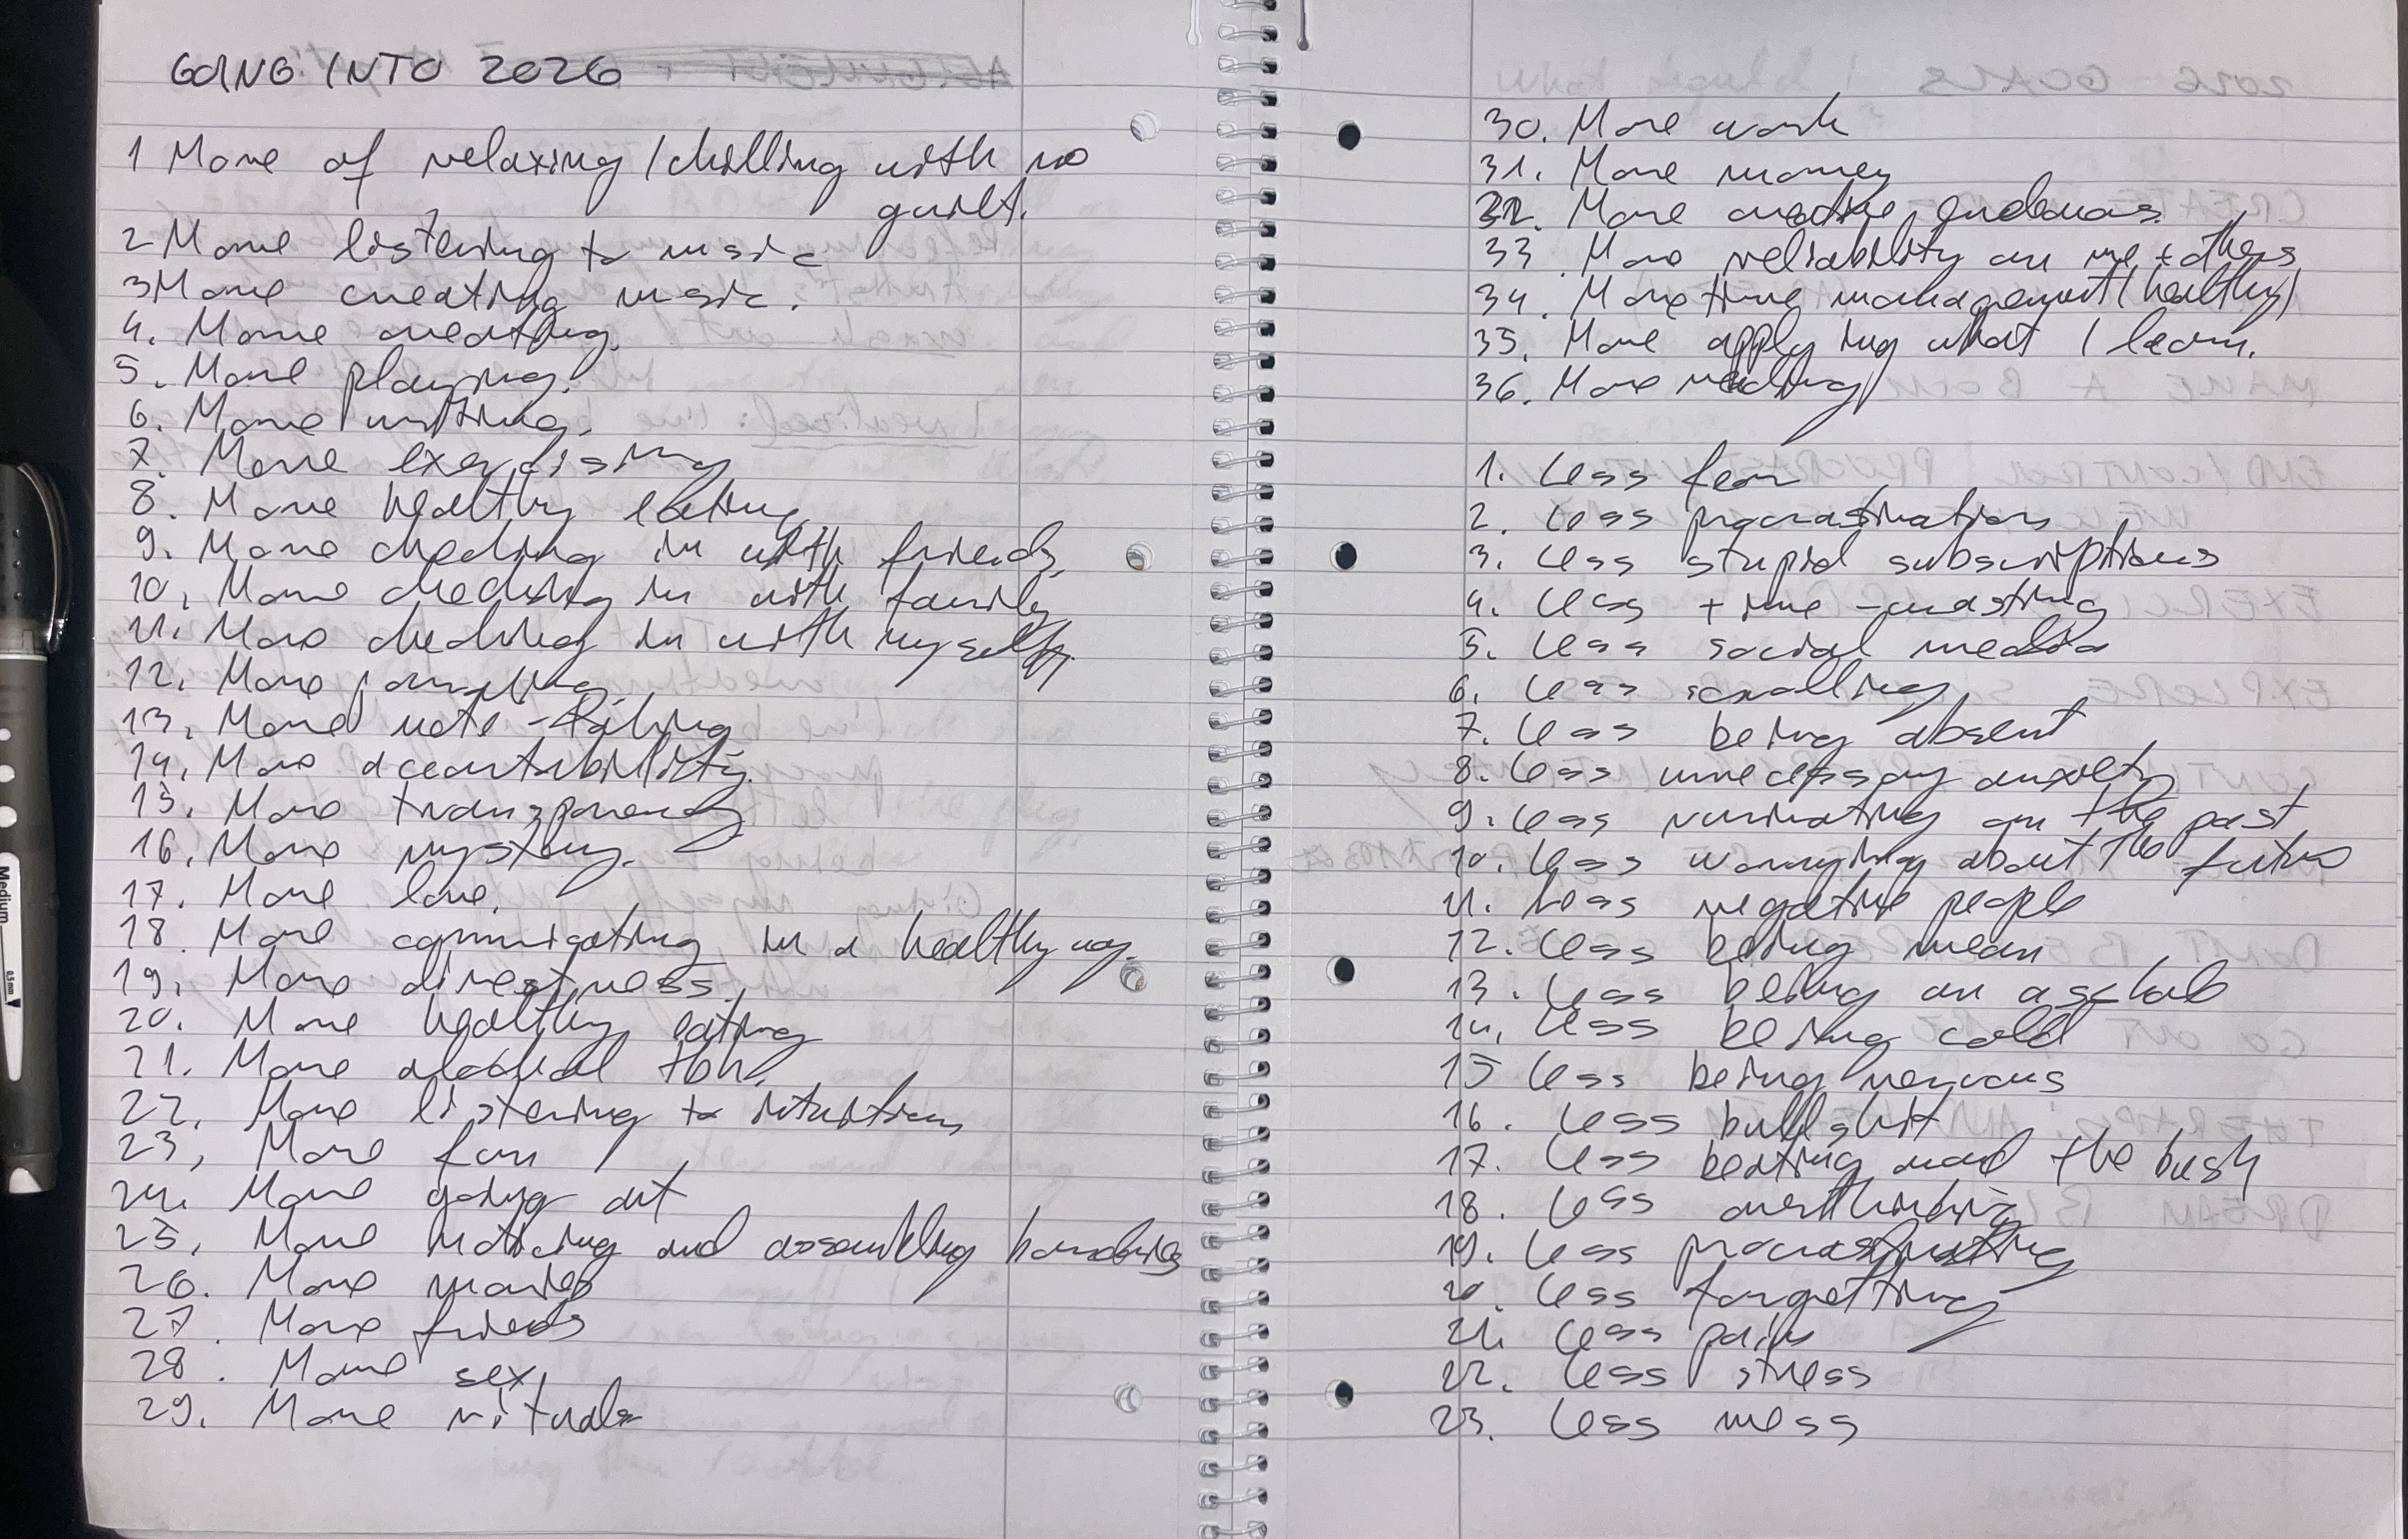 GOING INTO 2026
1 More of relaxing / chilling with no
guilt.
2 More listening to music
3 More creating music.
4. More creating.
5. More playing.
6. More writing.
7. More exercising
8. More healthy eating
9. More checking in with friends.
10. More checking in with family
11. More checking in with myself.
12. More journalling
13. More note-taking
14. More accountability.
15. More transparency
16. More mystery.
17. More love.
18. More communicating in a healthy way.
19. More directness.
20. More healthy eating
21. More alcohol
22. More listening to intuition
23. More fun
24. More going out
25. More noticing and assembling
26. More movies
27. More friends
28. More sex
29. More rituals
30. More work
31. More money
32. More creative endeavors.
33. More reliability on me + others
34. More time management (healthy)
35. More applying what I learn.
36. More reading
1. Less fear
2. Less procrastination
3. Less stupid subscriptions
4. Less time-wasting
5. Less social media
6. Less scrolling
7. Less being absent
8. Less unnecessary anxiety
9. Less ruminating on the past
10. Less worrying about the future
11. Less negative people
12. Less being mean
13. Less being an
14. Less being cold
15 Less being nervous
16. Less bullshit
17. Less beating around the bush
18. Less overthinking
19. Less procrastinating
20. Less forgetting
21. Less pain
22. Less stress
23. Less mess